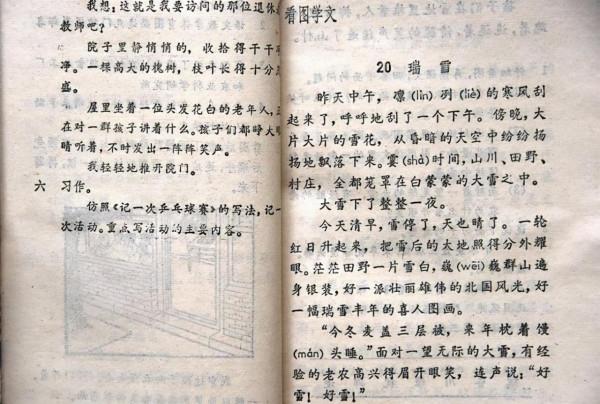 我想，这就是我要访问的那位退休
教师吧？
院子里静悄悄的，收拾得干干
净。一棵高大的槐树，枝叶长得十分
盛。
屋里坐着一位头发花白的老年人，正
在对一群孩子讲着什么。孩子们都睁大
睛听着，不时发出一阵阵笑声。
我轻轻地推开院门。
六 习作。
仿照《记一次乒乓球赛》的写法，记一
次活动。重点写活动的主要内容。
看图学文
20 瑞雪
昨天中午，凛(lǐn)冽(liè)的寒风刮
起来了，呼呼地刮了一个下午。傍晚，大
片大片的雪花，从昏暗的天空中纷纷扬
扬地飘落下来。霎(shà)时间，山川、田野、
村庄，全都笼罩在白蒙蒙的大雪之中。
大雪下了整整一夜。
今天清早，雪停了，天也晴了。一轮
红日升起来，把雪后的大地照得分外耀
眼。茫茫田野一片雪白，巍(wēi)巍群山遍
身银装，好一派壮丽雄伟的北国风光，好
一幅瑞雪丰年的喜人图画。
“今冬麦盖三层被，来年枕着馒
(mán)头睡。”面对一望无际的大雪，有经
验的老农高兴得眉开眼笑，连声说：“好
雪！好雪！”